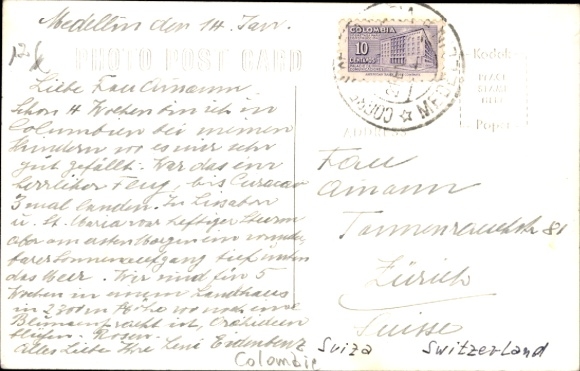 Medellin den 14 Jan.
PHOTO POST CARD
Liebe Frau Amann
schon 4 Wochen bin ich in
Columbien bei meinen
Kindern wo es mir sehr
gut gefällt. War das ein
herrlicher Flug, bis Curacao
3 mal landen. In Lissabon
u. St. Maria war heftiger Sturm
aber am andern Morgen ein wunder
barer Sonnenaufgang tief unten
das Meer. Wir sind für 5
Wochen in einem Landhaus
in 2800m Höhe wo noch eine
Blumenpracht ist, Orchideen
Rosen
Alles Liebe Ihre Leni Eidenbenz
COLOMBIA
10
CENTAVOS
CORREO
Kodak
PLACE
STAMP
HERE
Paper
ADDRESS
Frau
Amann
81
Zürich
Suisse
Colombie
Suiza Switzerland